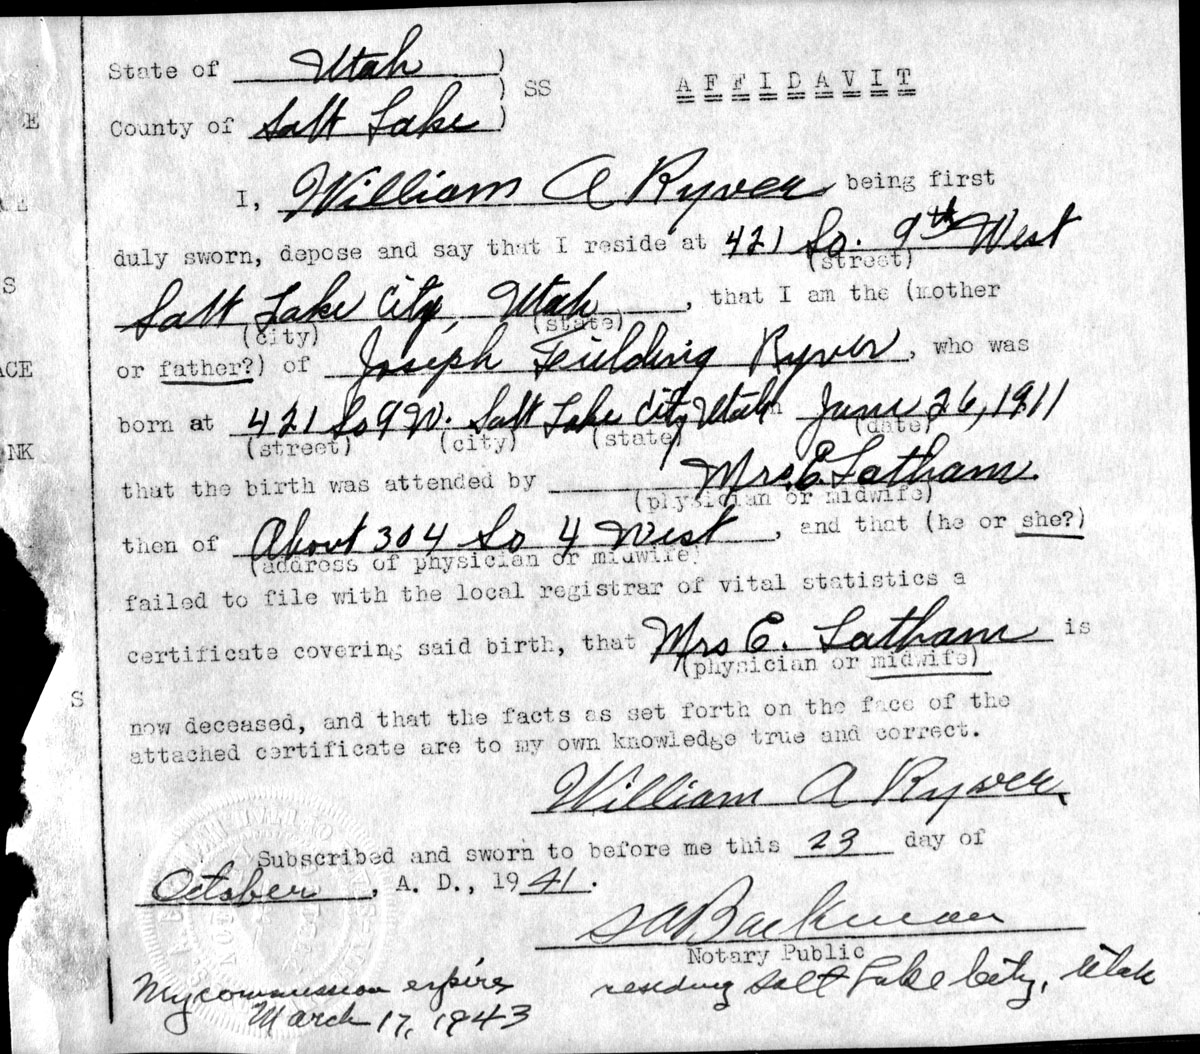 State of Utah )
) SS AFFIDAVIT
County of Salt Lake )
I, William A Ryver being first
duly sworn, depose and say that I reside at 421 So. 9th West
(street)
Salt Lake City, Utah, that I am the (mother
(city) (state)
or father?) of Joseph Feilding Ryver, who was
born at 421 So 9 W. Salt Lake City Utah June 26, 1911
(street) (city) (state) (date)
that the birth was attended by Mrs. E. Latham.
(physician or midwife)
then of About 304 So 4 West, and that (he or she?)
(address of physician or midwife)
failed to file with the local registrar of vital statistics a
certificate covering said birth, that Mrs E. Latham is
(physician or midwife)
now deceased, and that the facts as set forth on the face of the
attached certificate are to my own knowledge true and correct.
William A Ryver.
Subscribed and sworn to before me this 23 day of
October, A. D., 1941.
S A Backman
Notary Public
My commission expires residing Salt Lake City, Utah
March 17, 1943
E
E
S
ACE
NK
S